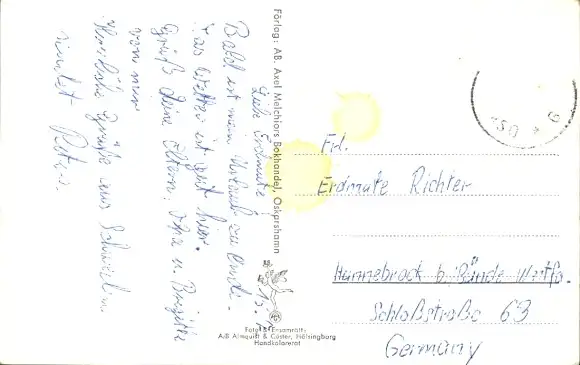 Liebe Erdmute!
Bald ist mein Urlaub zu Ende.
Das Wetter ist gut hier.
Grüß deine Eltern, Opa u. Brigitte
von mir
Herzliche Grüße aus
sendet
Förlag: AB. Axel Melchiors Bokhandel, Oskarshamn
Foto & Ensamrätt:
A/B Almquist & Cöster, Hälsingborg
Handkolorerat
Frl.
Erdmute Richter
Hunnebrock b. Bünde
Schloßstraße 63
Germany